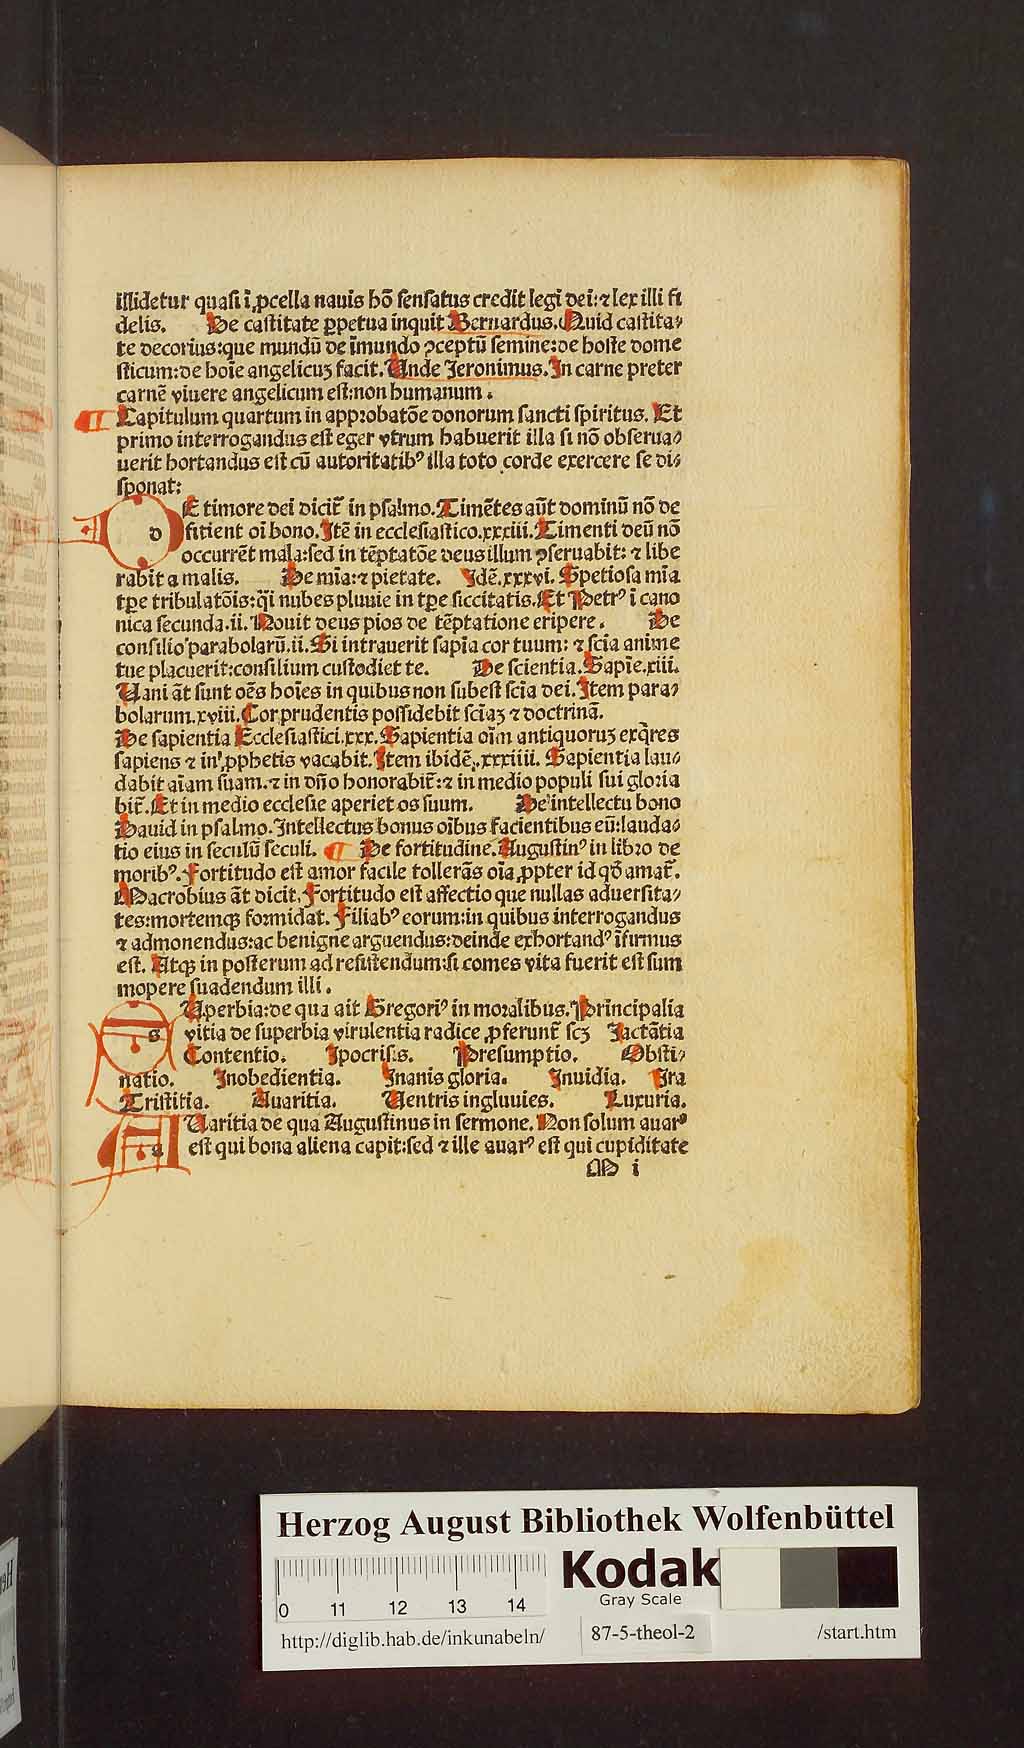 illidetur quasi ī ꝓcella nauis hō sensatus credit legi dei: ⁊ lex illi fi
delis. De castitate ꝑpetua inquit Bernardus. Quid castita⸗
te decorius: que mundū de īmundo ꝯceptū semine: de hoste dome
sticum: de hoīe angelicuꝫ facit. Unde Jeronimus. In carne preter
carnē viuere angelicum est: non humanum.
Capitulum quartum in approbatōe donorum sancti spiritus. Et
primo interrogandus est eger vtrum habuerit illa si nō obserua⸗
uerit hortandus est cū autoritatibꝰ illa toto corde exercere se di⸗
sponat:
d E timore dei dicit̄ in psalmo. Timētes aūt dominū nō de
fitient oī bono. Itē in ecclesiastico. xxxiii. Timenti deū nō
occurrēt mala: sed in tēptatōe deus illum ꝯseruabit: ⁊ libe
rabit a malis. De mīa: ⁊ pietate. Idē. xxxvi. Spetiosa mīa
tꝑe tribulatōis: q̄i nubes pluuie in tꝑe siccitatis. Et Petrꝰ ī cano
nica secunda. ii. Nouit deus pios de tēptatione eripere. De
consilio parabolarū. ii. Si intrauerit sapīa cor tuum: ⁊ scīa anime
tue placuerit: consilium custodiet te. De scientia. Sapīe. xiii.
Uani āt sunt oēs hoīes in quibus non subest scīa dei. Item para⸗
bolarum. xviii. Cor prudentis possidebit scīaꝫ ⁊ doctrinā.
De sapientia Ecclesiastici. xxx. Sapientia oīm antiquoruꝫ exq̄res
sapiens ⁊ in ꝓphetis vacabit. Item ibidē. xxxiiii. Sapientia lau⸗
dabit aīam suam. ⁊ in dn̄o honorabit̄: ⁊ in medio populi sui gloria
bit̄. Et in medio ecclesie aperiet os suum. De intellectu bono
Dauid in psalmo. Intellectus bonus oībus facientibus eū: lauda⸗
tio eius in seculū seculi. ¶ De fortitudine. Augustinꝰ in libro de
moribꝰ. Fortitudo est amor facile tollerās oīa ꝓpter id qd̄ amat̄.
Macrobius āt dicit. Fortitudo est affectio que nullas aduersita⸗
tes: mortemqꝫ formidat. Filiabꝰ eorum: in quibus interrogandus
⁊ admonendus: ac benigne arguendus: deinde exhortandꝰ īfirmus
est. Atqꝫ in posterum ad resistendum: si comes vita fuerit est sum
mopere suadendum illi.
s Uperbia: de qua ait Gregoriꝰ in moralibus. Principalia
vitia de superbia virulentia radice ꝓferunt̄ scꝫ Jactātia
Contentio. Ipocrisis. Presumptio. Obsti⸗
natio. Inobedientia. Inanis gloria. Inuidia. Ira
Tristitia. Auaritia. Uentris ingluuies. Luxuria.
a Uaritia de qua Augustinus in sermone. Non solum auarꝰ
est qui bona aliena capit: sed ⁊ ille auarꝰ est qui cupiditate
M i
Herzog August Bibliothek Wolfenbüttel
Kodak
Gray Scale
0 11 12 13 14
http://diglib.hab.de/inkunabeln/ 87-5-theol-2 /start.htm